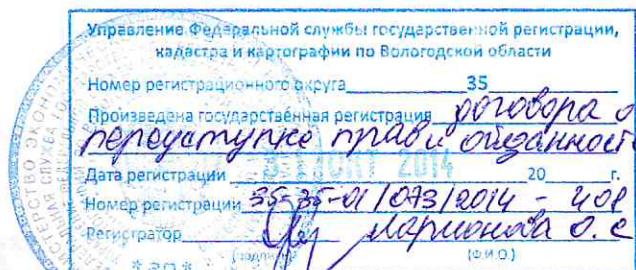 Управление Федеральной службы государственной регистрации,
кадастра и картографии по Вологодской области
Номер регистрационного округа 35
Произведена государственная регистрация договора о
переуступке прав и обязанност
31 ОКТ 2014
Дата регистрации 20 г.
Номер регистрации 35-35-01/073/2014 - 408
Регистратор Ларионова О.С
(подпись) (Ф.И.О.)